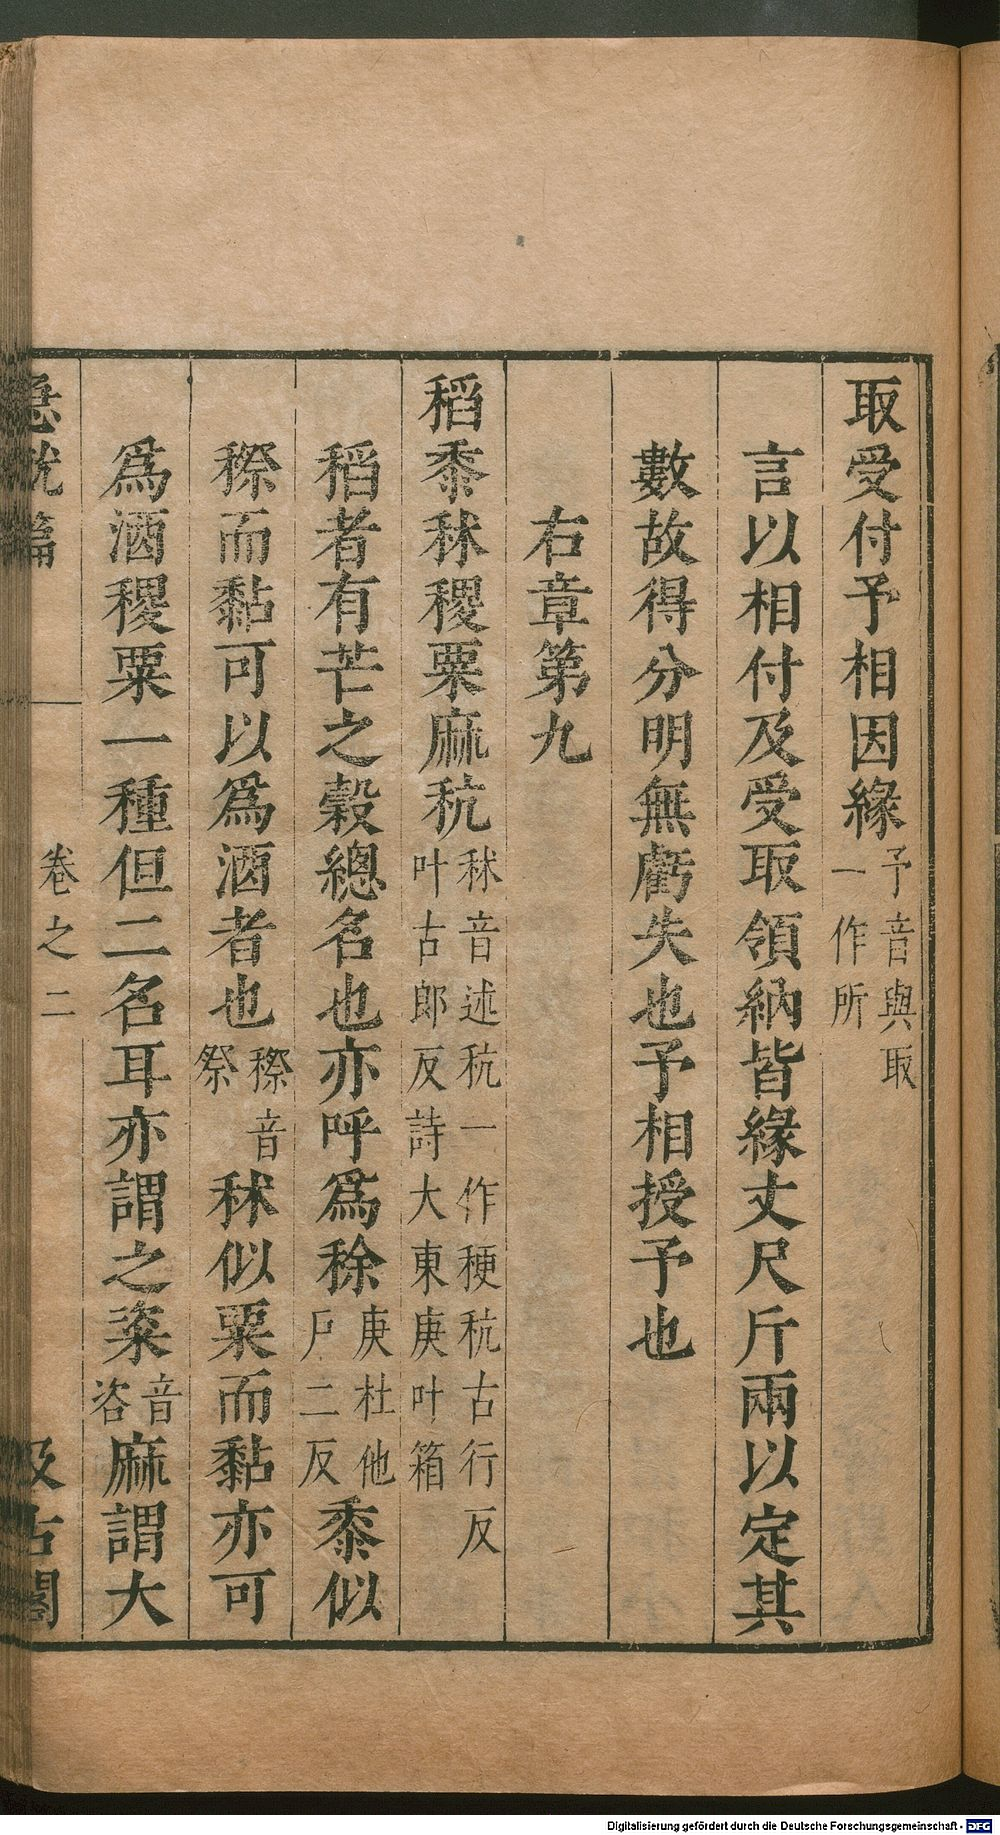 取受付予相因緣予音與取一作所
言以相付及受取領納皆緣丈尺斤兩以定其
數故得分明無虧失也予相授予也
右章第九
稻黍秫稷粟麻秔秫音述秔一作稉秔古行反叶古郎反詩大東庚叶箱
稻者有芒之穀總名也亦呼爲稌庚杜他戶二反黍似
穄而黏可以爲酒者也穄音祭秫似粟而黏亦可
爲酒稷粟一種但二名耳亦謂之粢音咨麻謂大
急就篇 卷之二 汲古閣
Digitalisierung gefördert durch die Deutsche Forschungsgemeinschaft - DFG